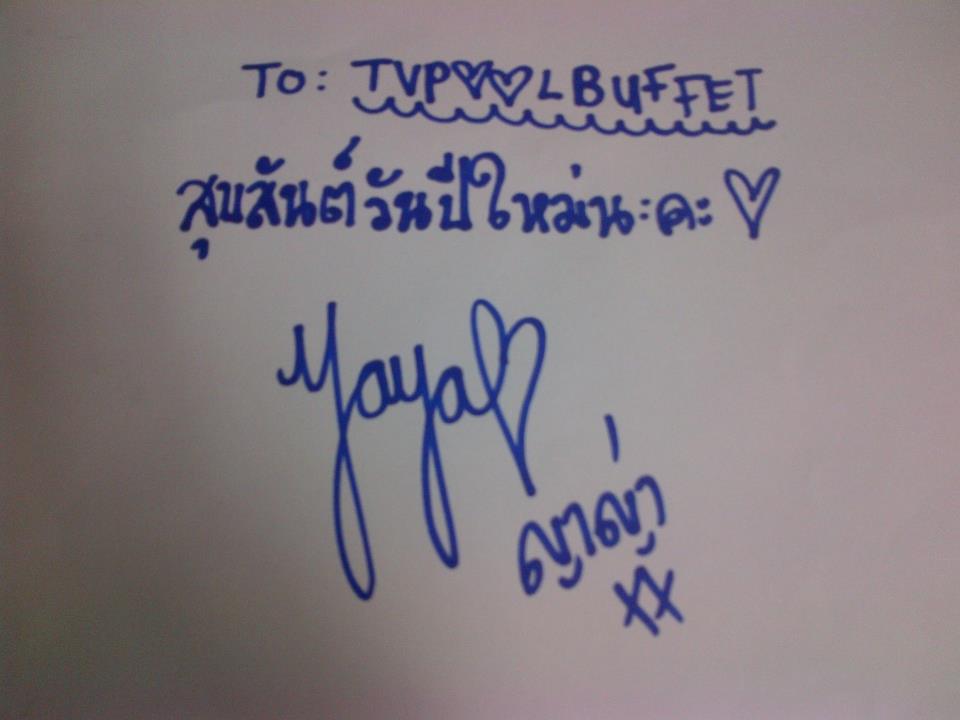 TO: TVP♡♡LBUFFET
สุขสันต์วันปีใหม่นะคะ ♡
Yaya♡
ญาญ่า
XX